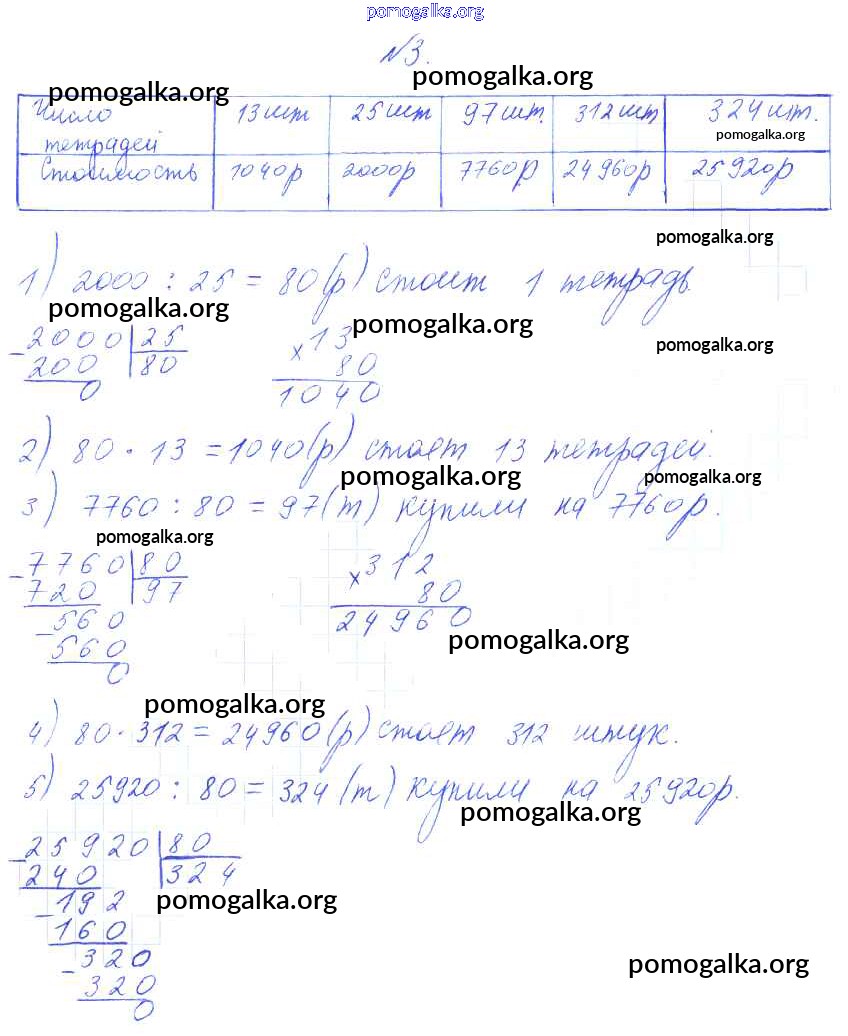 pomogalka.org
№3.
pomogalka.org
pomogalka.org
Число тетрадей 13 шт 25 шт 97 шт. 312 шт 324 шт.
pomogalka.org
Стоимость 1040р 2000р 7760р 24960р 25920р
pomogalka.org
1) 2000 : 25 = 80 (р) стоит 1 тетрадь.
pomogalka.org
pomogalka.org
pomogalka.org
- 2000 | 25
200 | 80
0
× 13
80
1040
2) 80 · 13 = 1040 (р) стоят 13 тетрадей.
pomogalka.org
pomogalka.org
3) 7760 : 80 = 97 (т) купили на 7760р.
pomogalka.org
- 7760 | 80
720 | 97
- 560
560
0
× 312
80
24960
pomogalka.org
pomogalka.org
4) 80 · 312 = 24960 (р) стоят 312 штук.
5) 25920 : 80 = 324 (т) купили на 25920р.
pomogalka.org
- 25920 | 80
240 | 324
- 192
160
- 320
320
0
pomogalka.org
pomogalka.org